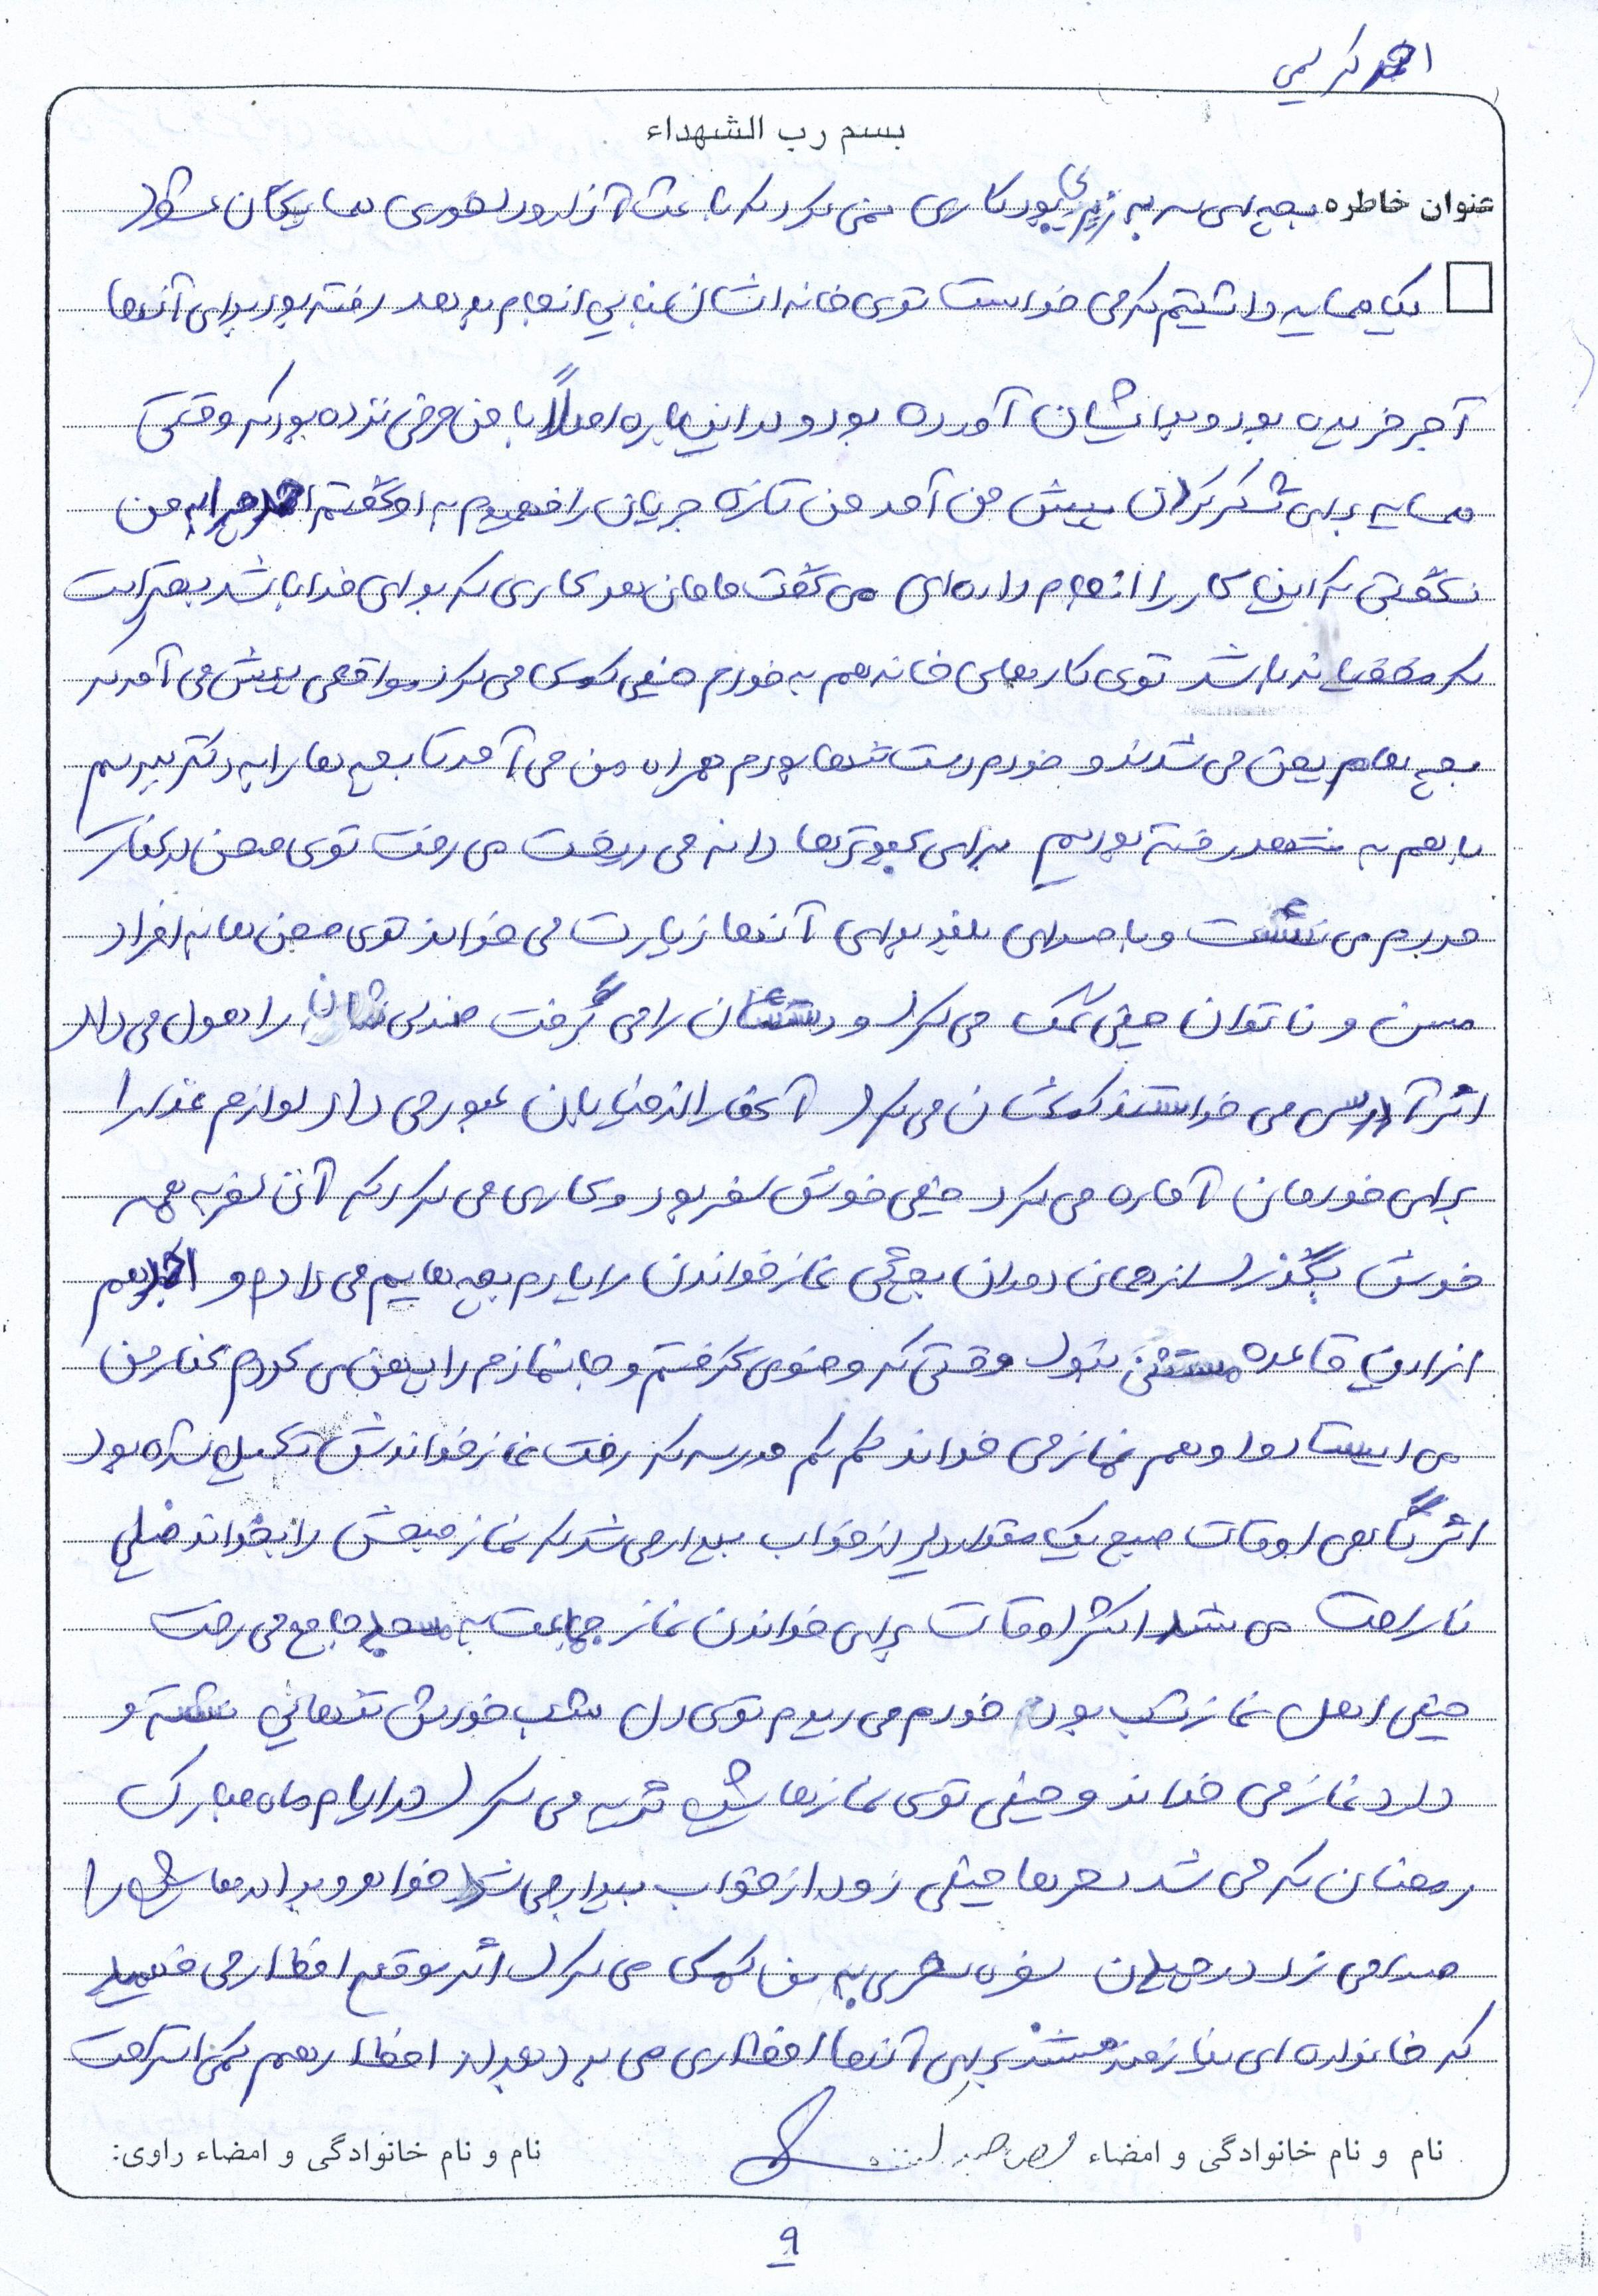 احمد کریمی
بسم رب الشهداء
عنوان خاطره بچه‌ای سر به زیری بود کاری نمی‌کرد که باعث آزار و دلخوری همسایگان شود
یک همسایه داشتیم که می خواست توی خانه اشان بنایی انجام بدهد رفته بود برای آنها
آجر خریده بود و برایشان آورده بود و در این باره اصلاً با من حرفی نزده بود که وقتی
همسایه برای تشکر کردن پیش من آمد من تازه جریان را فهمیدم به او گفتم احمد چرا به من
نگفتی که این کار را انجام داده‌ای می گفت مامان هر کاری که برای خدا باشد بهتر است
که مخفیانه باشد توی کارهای خانه هم به خودم خیلی کمک می کرد مواقعی پیش می آمد که
بچه هام مریض می شدند و خودم دست تنها بودم همراه من می آمد تا بچه ها را به دکتر ببریم
با هم به مشهد رفته بودیم برای کبوترها دانه می ریخت می رفت توی صحن در کنار
مردم می نشست و با صدای بلند برای آنها زیارت می خواند توی صحن ها به افراد
مسن و ناتوان خیلی کمک می کرد و دستشان را می گرفت صندلی شان را هول می داد
اگر آدرس می خواستند کمکشان می کرد آنها را از خیابان عبور می داد لوازم غذا را
برای خودمان آماده می کرد خیلی خوش سفر بود و کاری می کرد که آن سفر به همه
خوش بگذرد از همان دوران بچگی نماز خواندن را یادم بچه هایم می دادم و احمد هم
از این قاعده مستثنی نبود وقتی که وضوی گرفتم و جانمازم را پهن می کردم کنار من
می ایستاد و او هم نماز می خواند کم کم مدرسه که رفت نماز خواندنش تکمیل شده بود
اگر گاهی اوقات صبح یک مقدار دیر از خواب بیدار می شد که نماز صبحش را بخواند خیلی
ناراحت می شد اکثر اوقات برای خواندن نماز جماعت به مسجد جامع می رفت
خیلی اهل نماز شب بود خودم می دیدم توی دل شب خودش تنهایی نشسته و
دارد نماز می خواند و خیلی توی نمازهایش گریه می کرد در ایام ماه مبارک
رمضان که می شد سحرها خیلی زود از خواب بیدار می شد خواهر و برادرهایش را
صدا می زد در چیدن سفره سحری به من کمک می کرد اگر موقع افطار می فهمید
که خانواده ای نیازمند هستند برای آنها افطاری می برد بعد از افطار هم کمی استراحت
نام و نام خانوادگی و امضاء
نام و نام خانوادگی و امضاء راوی:
۹